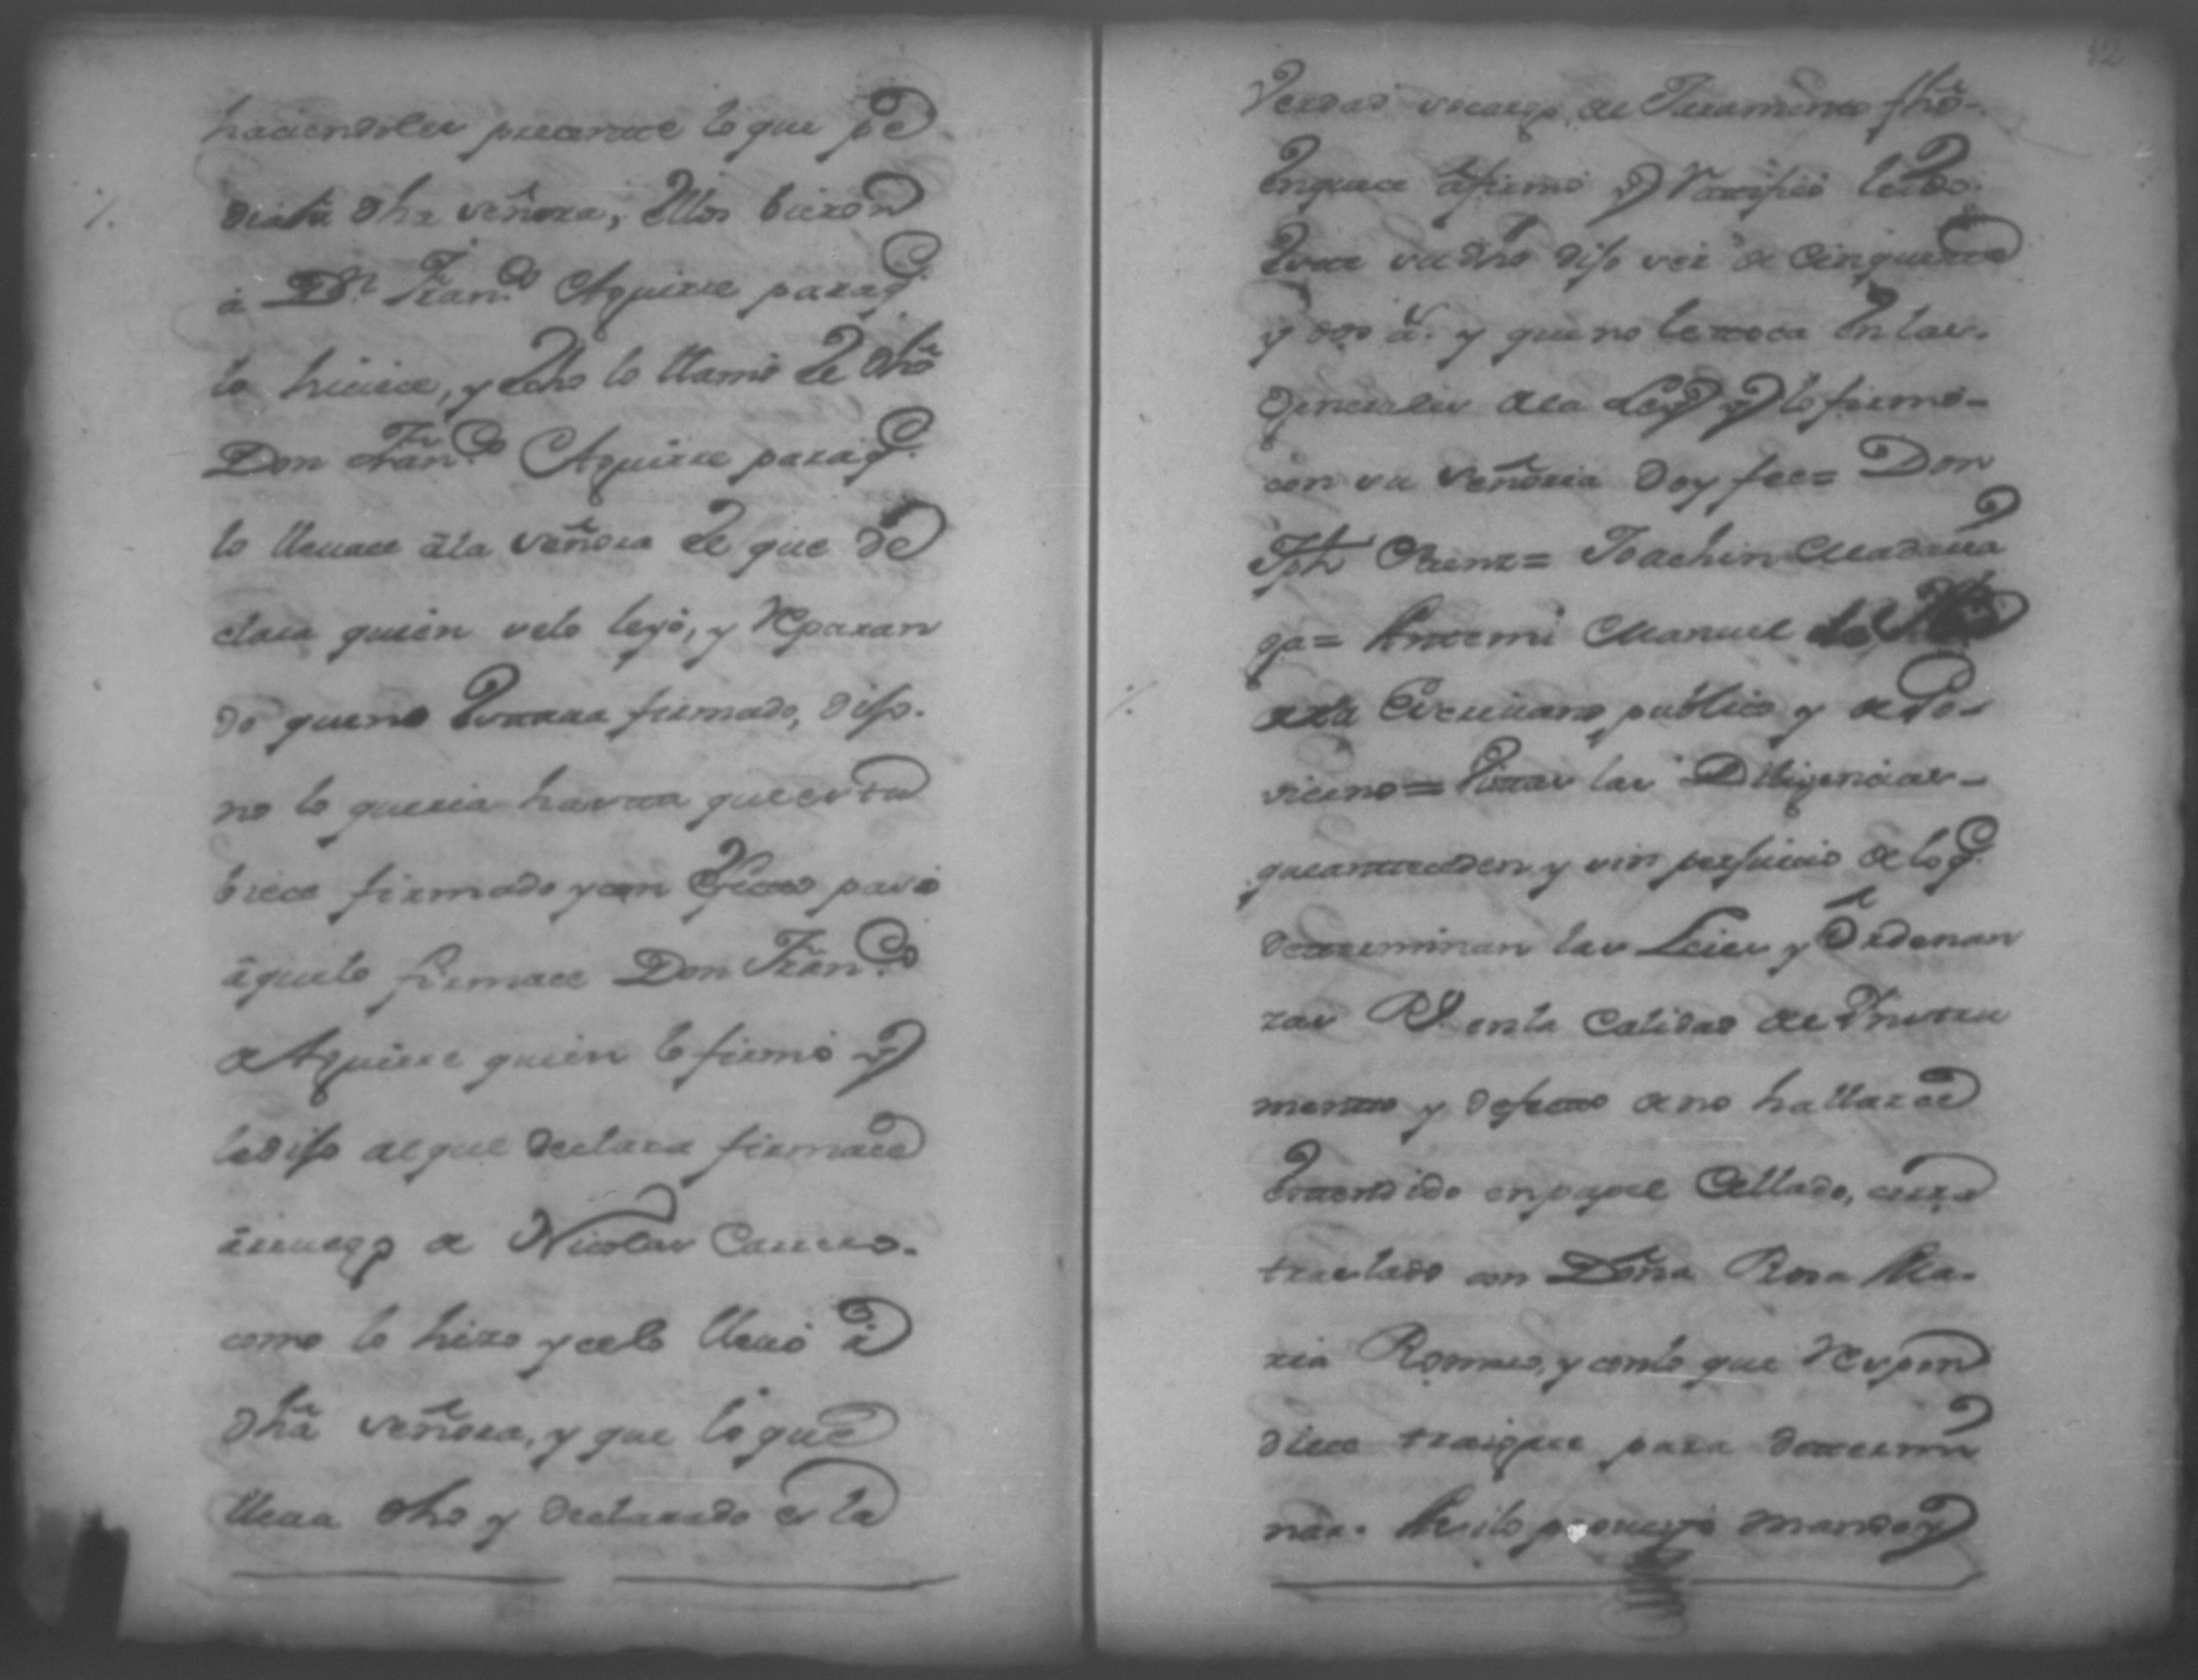 haciendoles precente lo que pe
diata dha señora, Ellos bieron
a Dn. Franco. Aguirre paraq.
lo hiciece, y Echo lo llamó Le dho
Don Franco. Aguirre paraq.
lo lleuace âla señora Le que de
clara quien selo leyó, y Reparan
do queno Estaua firmado, dijo.
no lo queria hasta que estu
biece firmado y con Efecto pasó
âquelo firmace Don Franco.
de Aguirre quien lo firmó y
ledijo aeque declara firmace
âruego de Nicolas
como lo hizo ycelo lleuó â
dha señora, y que lo que
lleua dho y declarado es la
42
Verdad socargo de Juramento fho-
Enquece âfirmó y Ratificó leido
Esce su dho dijo ser de Cinquenta
y dos as. y que no letoca En las.
Generales dela Ley y lo firmó-
con su señoria doy fee= Don
Jph Saenz= Joachin Madaria
ga= Antemi Manuel
Escriuano publico y de Pro-
uicino= Vistas las Diligencias-
queanteceden y sin perjuicio de loq.
determinan las Leies y Ordenan
zas Rs. enla Calidad de Ynstru
mento y defecto deno hallarce
Estendido enpapel Cellado, corra
traslado con Doña Rosa Ma-
ria Romero, y conlo que Respon
diece traigace para determi
nar. Asilo proueyó mandó y